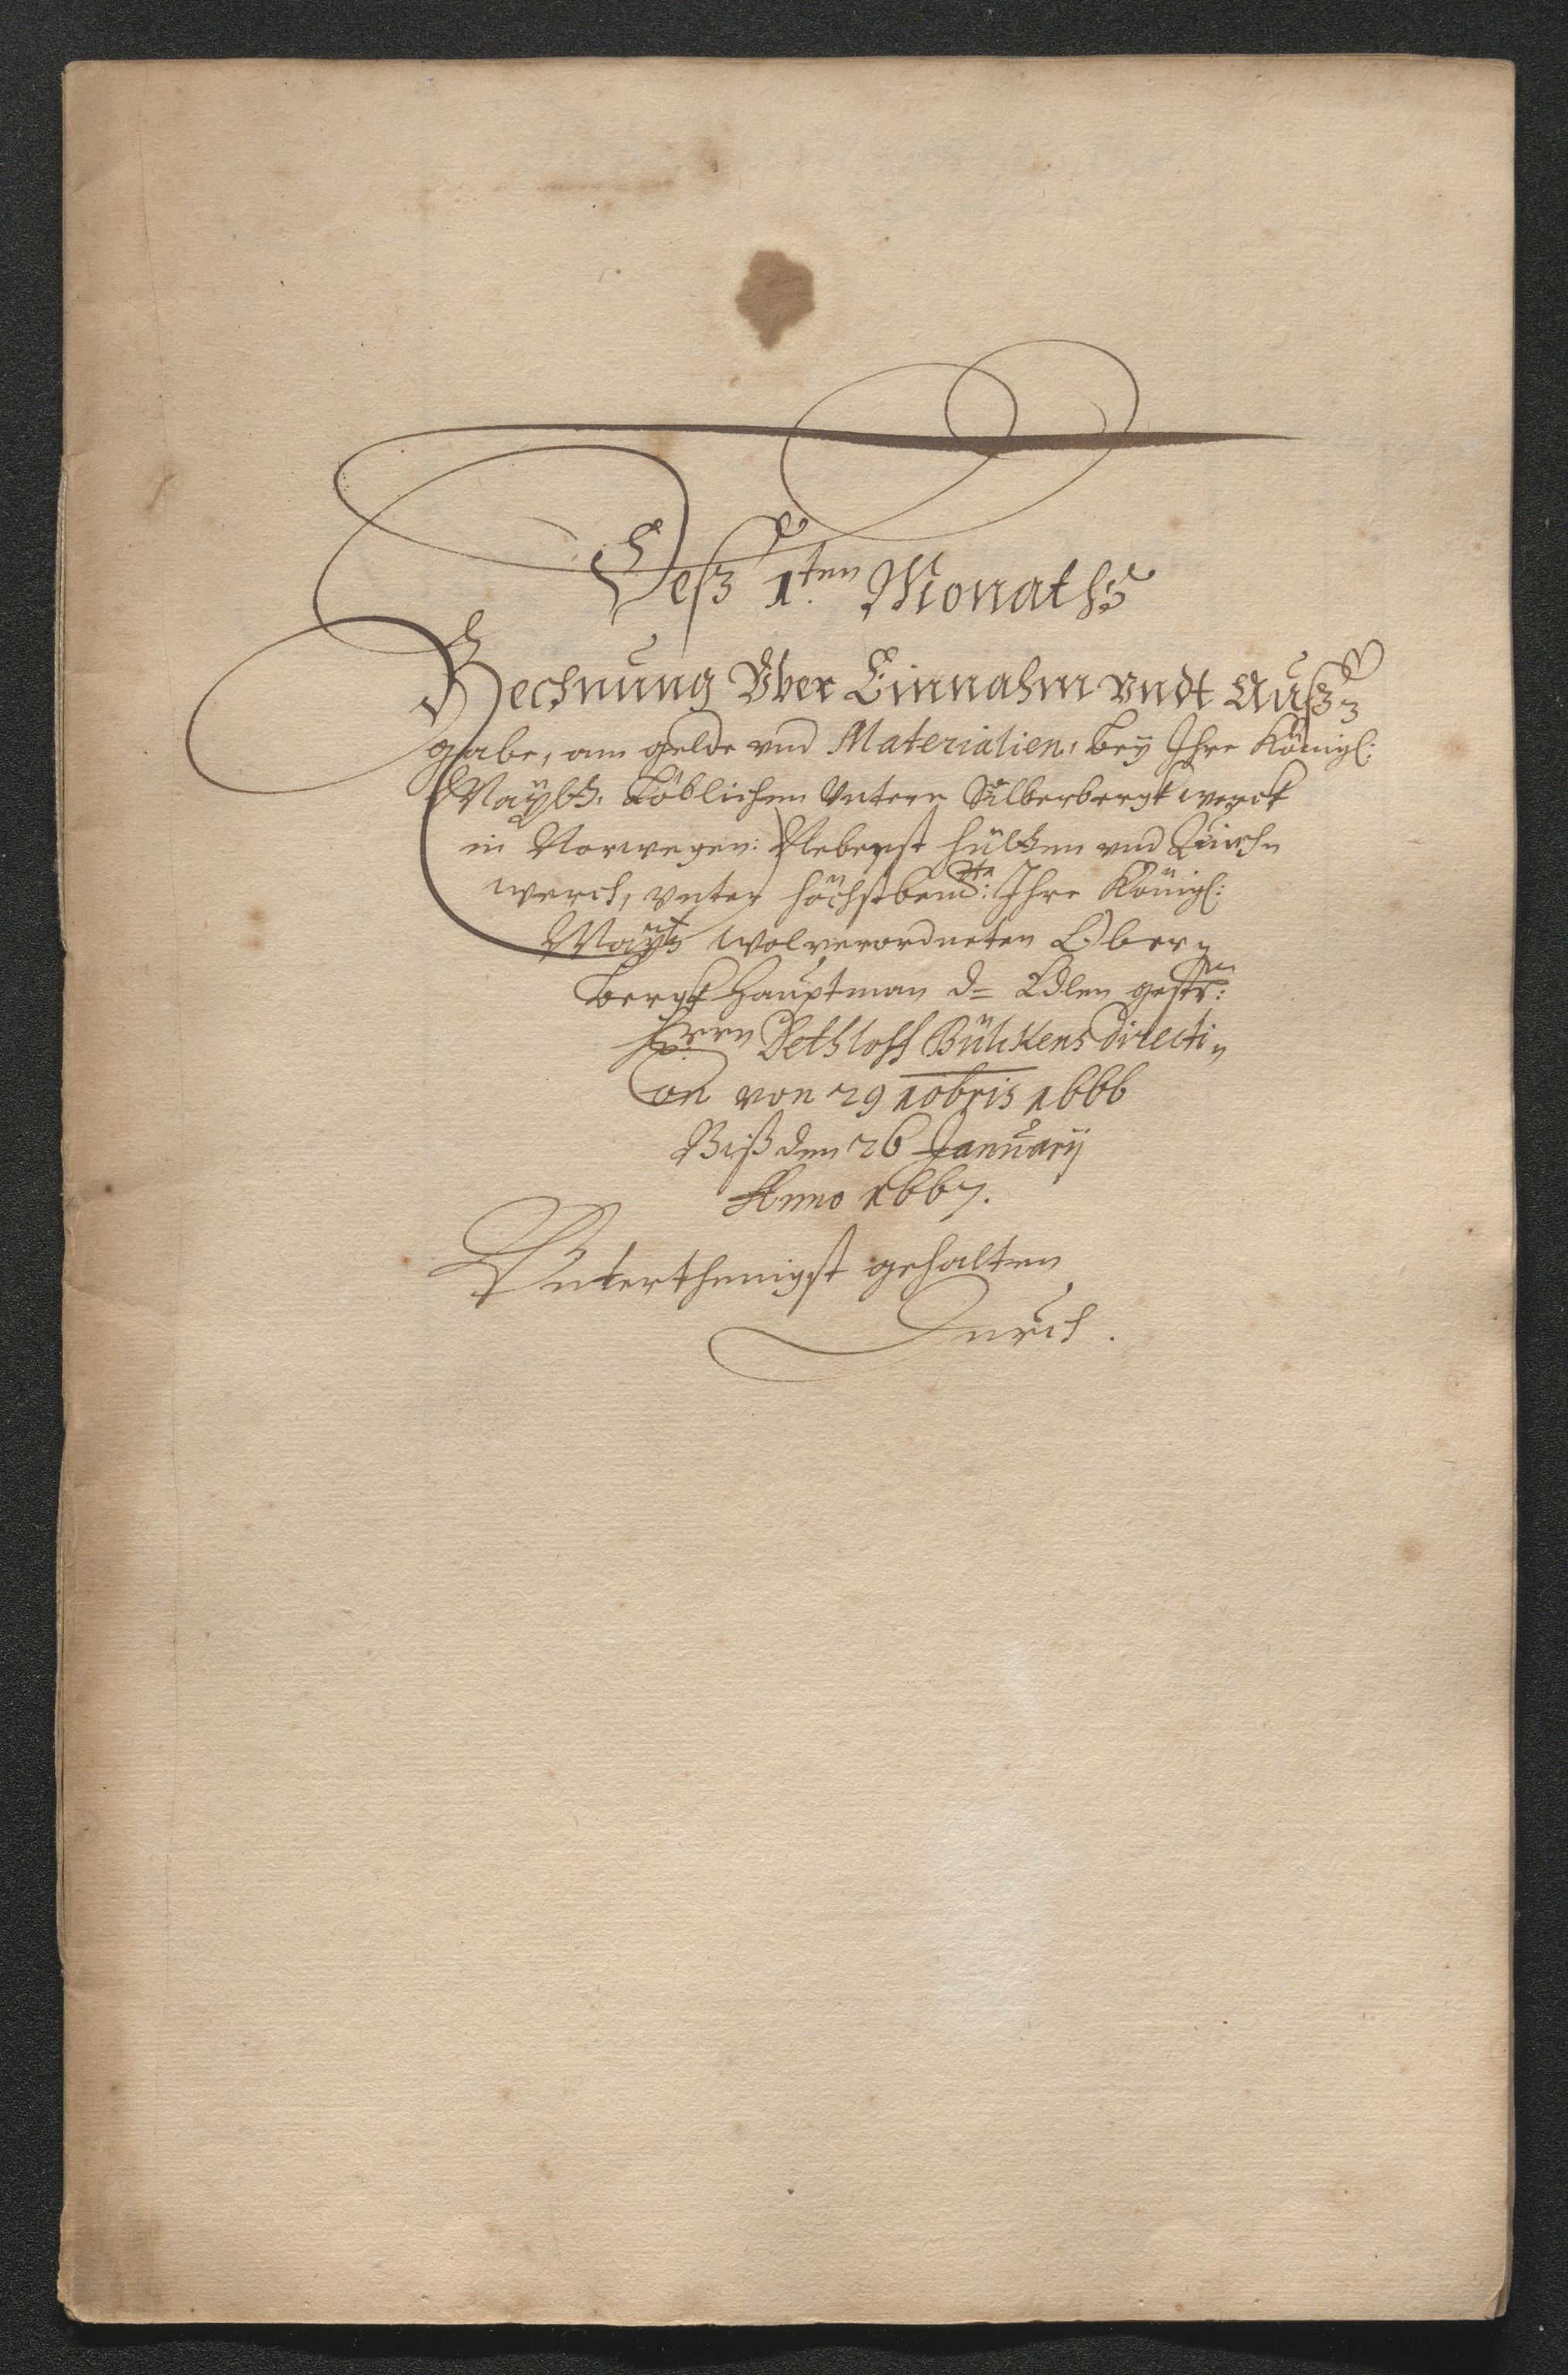 Deß 1ten. Monaths
Rechnung Vber Einnahm vndt Auß=
gabe, am gelde vnd Materialien, beÿ Ihre Königl:
Maÿtt. Löblichen Vntern Silberbergkwerck
in Norwegen: Nebenst hütten vnd
werck, vnter höchstbemte: Ihre Königl:
Maÿtt wolverordneten Ober=
bergkhauptman d= Edlen gestr:
Herrn Dethloff directi=
on von 29 10bris 1666
Biß den 26 January
Anno 1667.
Vnterthenigst gehalten
Durch.